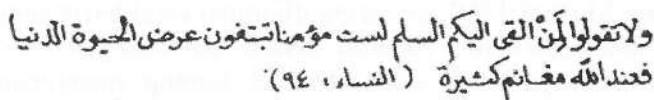 ولا تقولوا لِمَنْ القى اليكم السلم لست مؤمنا تبتغون عرض الحيوة الدنيا
فعند الله مغانم كثيرة ( النساء، ٩٤)٠